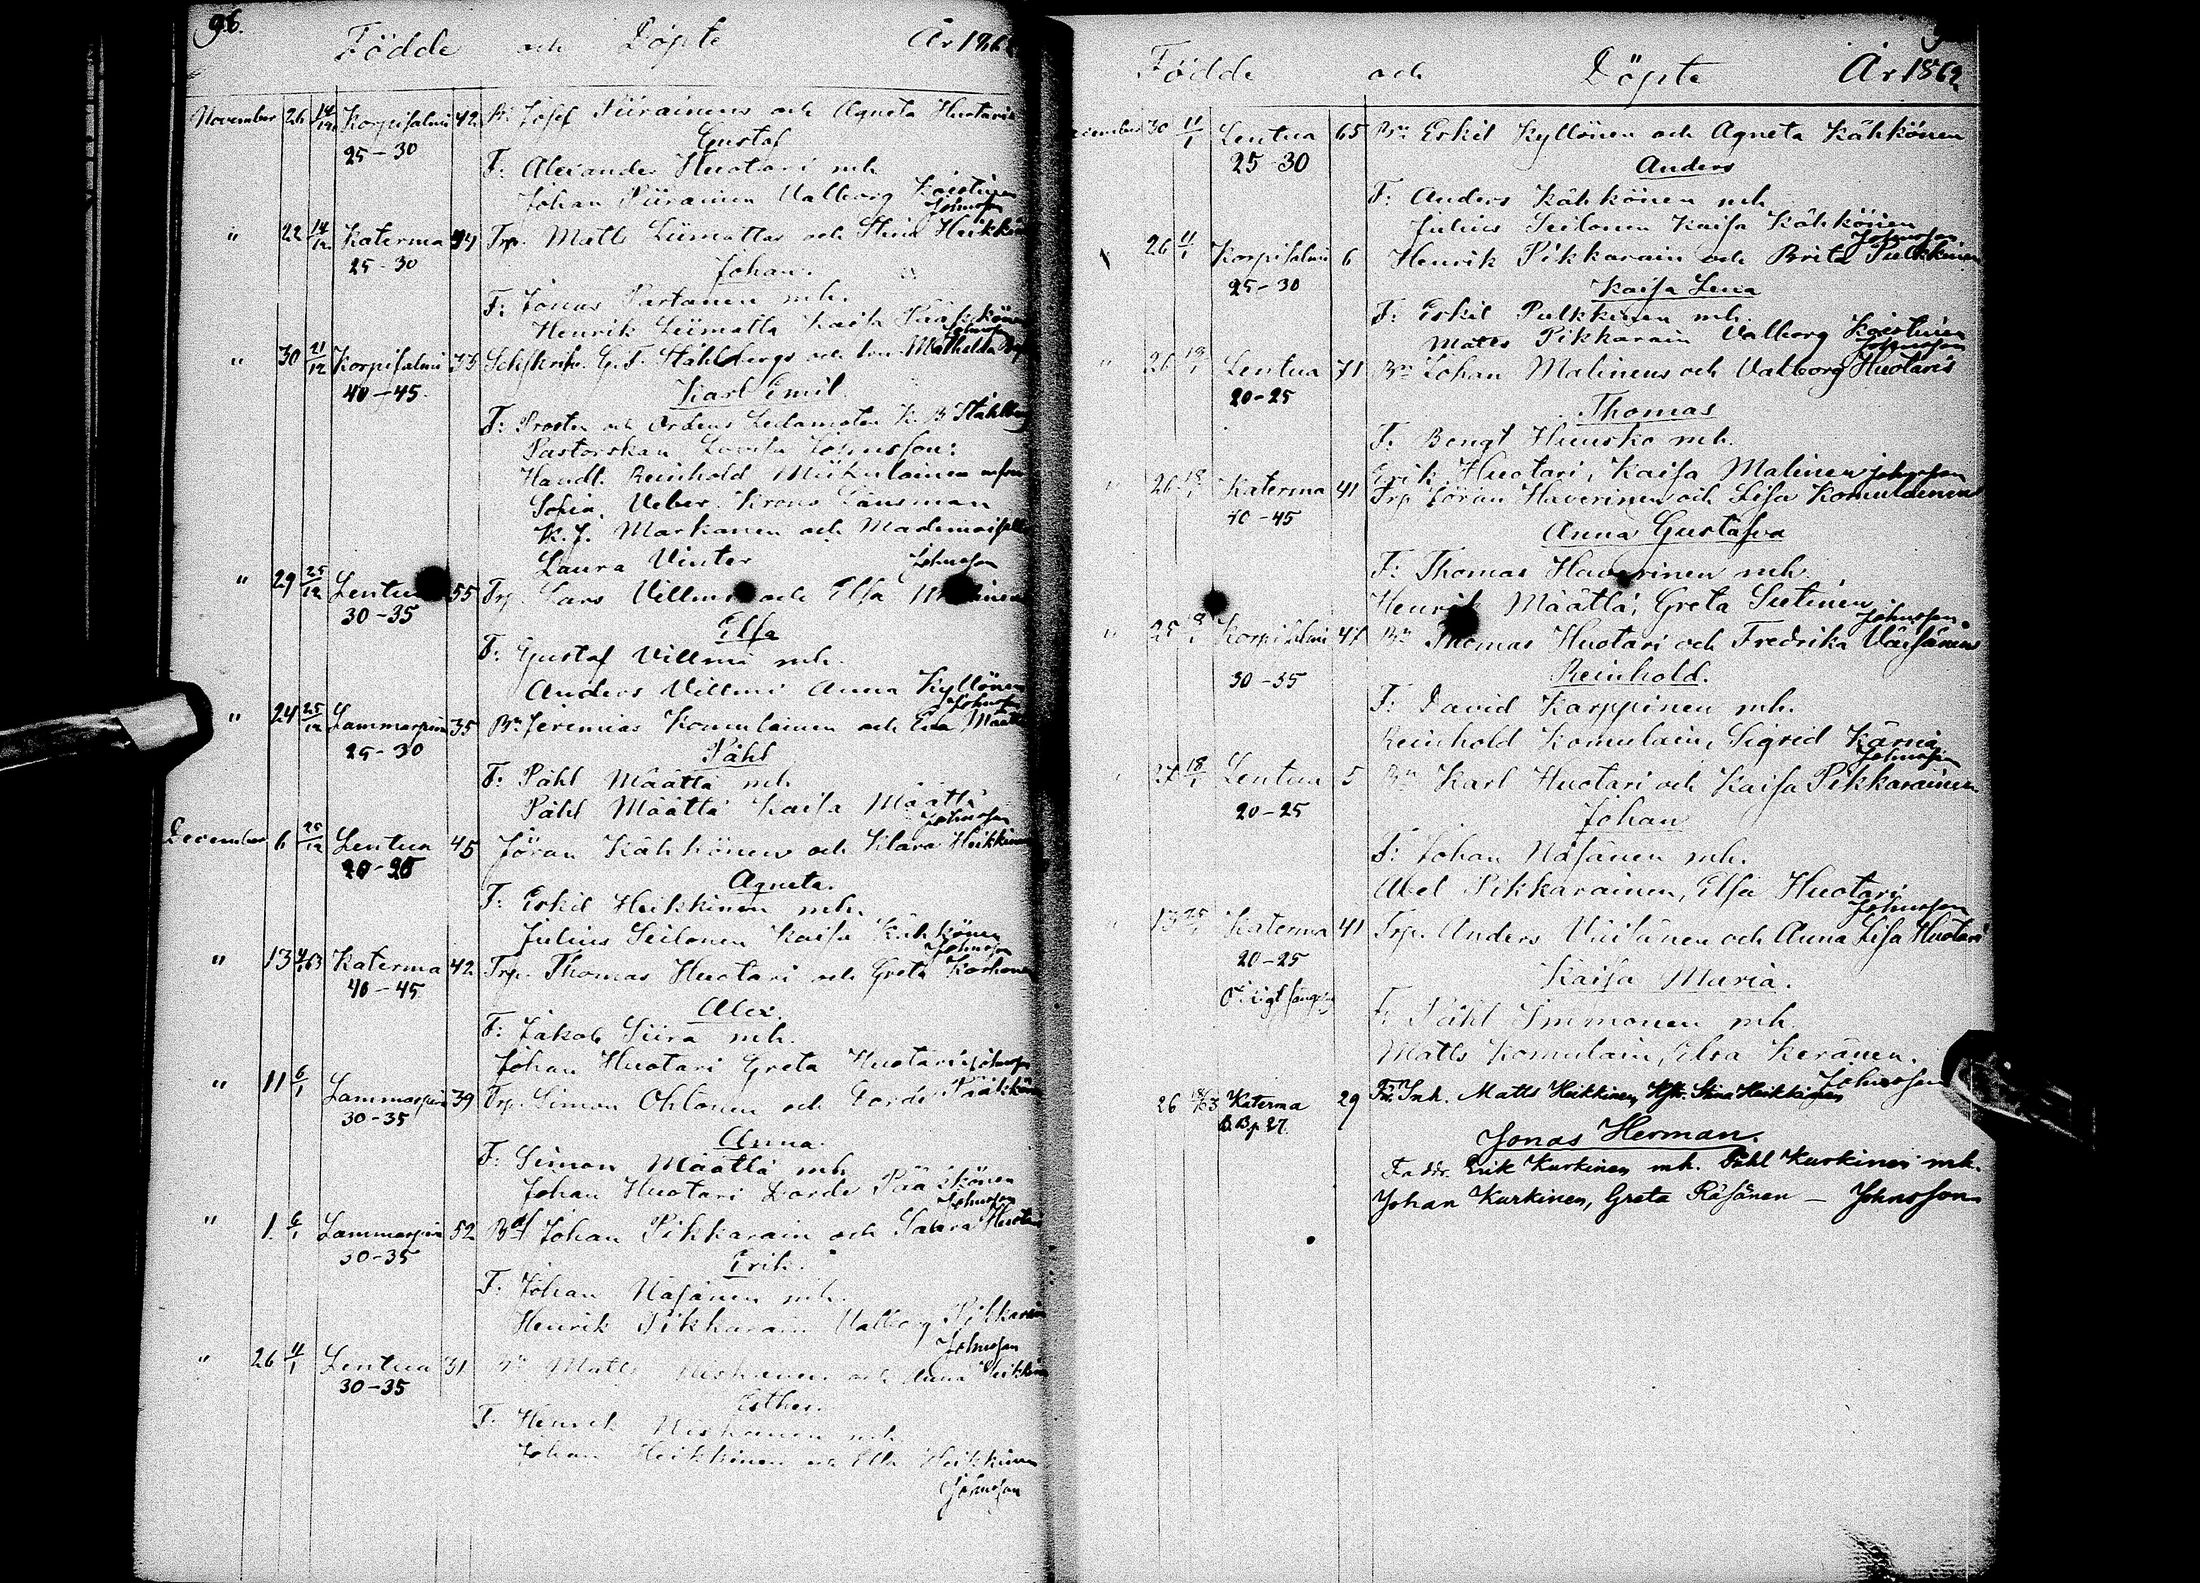 96.
Födde och Döpte År 186
November 26 14/12 Korpisalmi 42 Bn Josef Piirainens och Agneta Huotari
25-30 Gustaf
F: Alexander Huotari mh
Johan Piirainen Valborg Koistinen
Johnsson
" 22 14/12 Katerma 94 Trp. Matts Liimattas och Stina Heikkin
25-30 Johan.
F: Jonas Partanen mh.
Henrik Liimatta Kaisa Pääkkönen
Johnsson
" 30 21/12 Korpisalmi 33 G. F. Ståhlbergs och Mathilda
40-45. Karl Emil
F: Prosten och Ordens Ledamoten K. B Ståhlberg
Pastorskan Lovisa Johnsson:
Handl. Reinhold Miikulainen
Sofia Veber. Krono Länsman
K. J. Markanen och Mademoiselle
Laura Vinter Johnsson
" 29 25/12 Lentua 55 Trp. Lars Villmi och Elsa
30-35 Elsa
F: Gustaf Villmi mh.
Anders Villmi Anna Kyllönen
Johnsson
" 24 25/12 Lammasperä 35 Bn Jeremias Komulainen och Eva Määttä
25-30 Påhl
F: Påhl Määttä mh
Påhl Määttä Kaisa Määttä
Johnsson
December 6 25/12 Lentua 45 Jöran Kähkönen och Klara Heikkinen
20-25 Agneta.
F: Eskil Heikkinen mh.
Julius Seilonen Kaisa Kähkönen
Johnsson
" 13 4/1 63 Katerma 42 Trp. Thomas Huotari och Greta Korhonen
40-45 Alex.
F: Jakob Siira mh.
Johan Huotari Greta Huotari Johnsson
" 11 6/1 Lammasperä 39 Trp. Simon Ohtonen och Dorde Pääkkönen
30-35 Anna.
F: Simon Määttä mh
Johan Huotari Dorde Pääkkönen
Johnsson
" 1 6/1 Lammasperä 52 Johan Pikkarain och Saara Huotari
30-35 Erik.
F: Johan Väsänen mh.
Henrik Pikkarain Valborg Pikkarain
Johnsson
" 26 11/1 Lentua 31 Bn Matts Niskanen och Anna Heikkinen
30-35 Esther.
F: Henrik Niskanen mh.
Johan Heikkinen och Ella Heikkinen
Johnsson
Födde och Döpte År 1862
December 30 11/1 Lentua 65 Bn Eskil Kyllönen och Agneta Kähkönen
25-30 Anders
F: Anders Kähkönen mh
Julius Seilonen Kaisa Kähkönen
Johnsson
26 11/1 Korpisalmi 6 Henrik Pikkarain och Brita Pulkkinen
25-30 Kaisa Lena
F: Eskil Pulkkinen mh.
Matts Pikkarain Valborg Koistinen
Johnsson
" 26 18/1 Lentua 71 Bn Johan Malinens och Valborg Huotaris
20-25 Thomas
F. Bengt Huusko mh.
Erik Huotari, Kaisa Malinen Johnsson
" 26 18/1 Katerma 41 Trp. Jöran Haverinen och Lisa Komulainens
40-45 Anna Gustafva
F: Thomas Haverinen mh
Henrik Määttä, Greta Sutinen
Johnsson.
" 25 18/1 Korpisalmi 47 Bn Thomas Huotari och Fredrika Väisänen
30-35 Reinhold.
F: David Karppinen mh.
Reinhold Komulain, Sigrid Kärnä
Johnsson
27 18/1 Lentua 5 Bn Karl Huotari och Kaisa Pikkarainen
20-25 Johan
F: Johan Väsänen mh.
Abel Pikkarainen, Elsa Huotari
Johnsson
13 25/1 Katerma 41 Trp. Anders Väisänen och Anna Lisa Huotari
20-25 Kaisa Maria.
F. Påhl Immonen mh
Matts Komulain, Elsa Keränen.
Johnsson
26 18/63 Katerma 29 Inh. Matts Heikkinen, Hstr. Stina Heikkinen
B. B. p. 27. Jonas Herman.
Faddr. Erik Kurkinen mh. Påhl Kurkinen mh.
Johan Kurkinen, Greta Räsänen — Johnsson